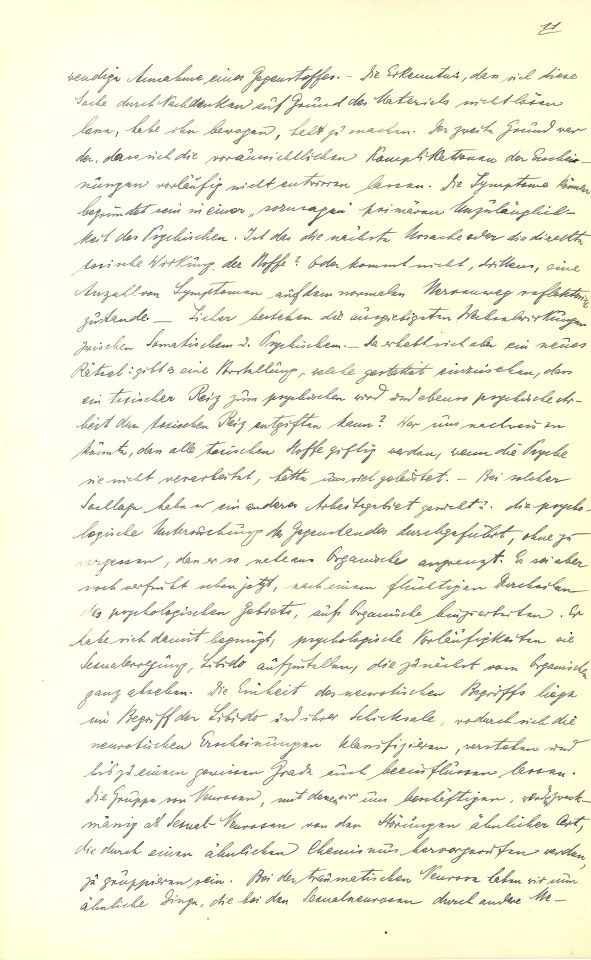 11
wendige Annahme eines Gegenstoffes. – Die Erkenntnis, dass sich diese
Sache durch Nachdenken auf Grund des Materials nicht lösen
lasse, habe ihn bewogen, halt zu machen. Der zweite Grund war
der, dass sich die voraussichtlichen Komplikationen der Erschei-
nungen vorläufig nicht entwirren lassen. Die Symptome können
begründet sein in einer „sozusagen" primären Unzulänglich-
keit des Psychischen. Ist das die nächste Ursache oder die direkte
toxische Wirkung der Stoffe? Oder kommt nicht, drittens, eine
Anzahl von Symptomen auf dem normalen Nervenweg reflektorisch
zustande. – Sicher bestehen die ausgiebigsten Wechselwirkungen
zwischen Somatischem u. Psychischem. – Da erhebt sich aber ein neues
Rätsel: gibt es eine Vorstellung, welche gestattet einzusehen, dass
ein toxischer Reiz zum psychischen wird und ebenso psychische Ar-
beit den toxischen Reiz entgiften kann? Wer uns nachweisen
könnte, dass alle toxischen Stoffe giftig werden, wenn die Psyche
sie nicht verarbeitet, hätte uns viel geleistet. – Bei solcher
Sachlage habe er ein anderes Arbeitsgebiet gesucht: die psycho-
logische Untersuchung des Gegenstandes durchgeführt, ohne zu
vergessen, dass er so nahe ans Organische angrenzt. Es sei aber
noch verfrüht schon jetzt, nach einem flüchtigen Durcheilen
des psychologischen Gebiets, aufs Organische hinzuarbeiten. Er
habe sich damit begnügt, psychologische Vorläufigkeiten wie
Sexualerregung, Libido aufzustellen, die zunächst vom Organischen
ganz absehen. Die Einheit des neurotischen Begriffs liege
im Begriff der Libido und ihrer Schicksale, wodurch sich die
neurotischen Erscheinungen klassifizieren, verstehen und
bis zu einem gewissen Grade auch beeinflussen lassen.
Die Gruppe von Neurosen, mit denen wir uns beschäftigen, werde zweck-
mässig als Sexual-Neurosen von den Störungen ähnlicher Art,
die durch einen ähnlichen Chemismus hervorgerufen werden,
zu gruppieren sein. Bei der traumatischen Neurose haben wir nun
ähnliche Dinge, die bei den Sexualneurosen durch andere Me-